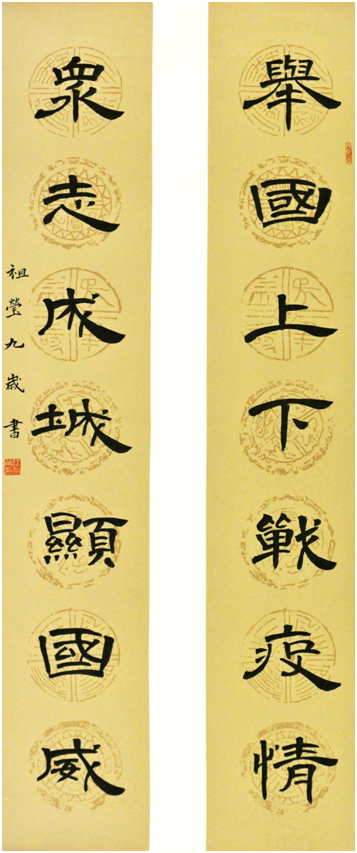 舉國上下戰疫情
衆志成城顯國威
祖瑩九歲書